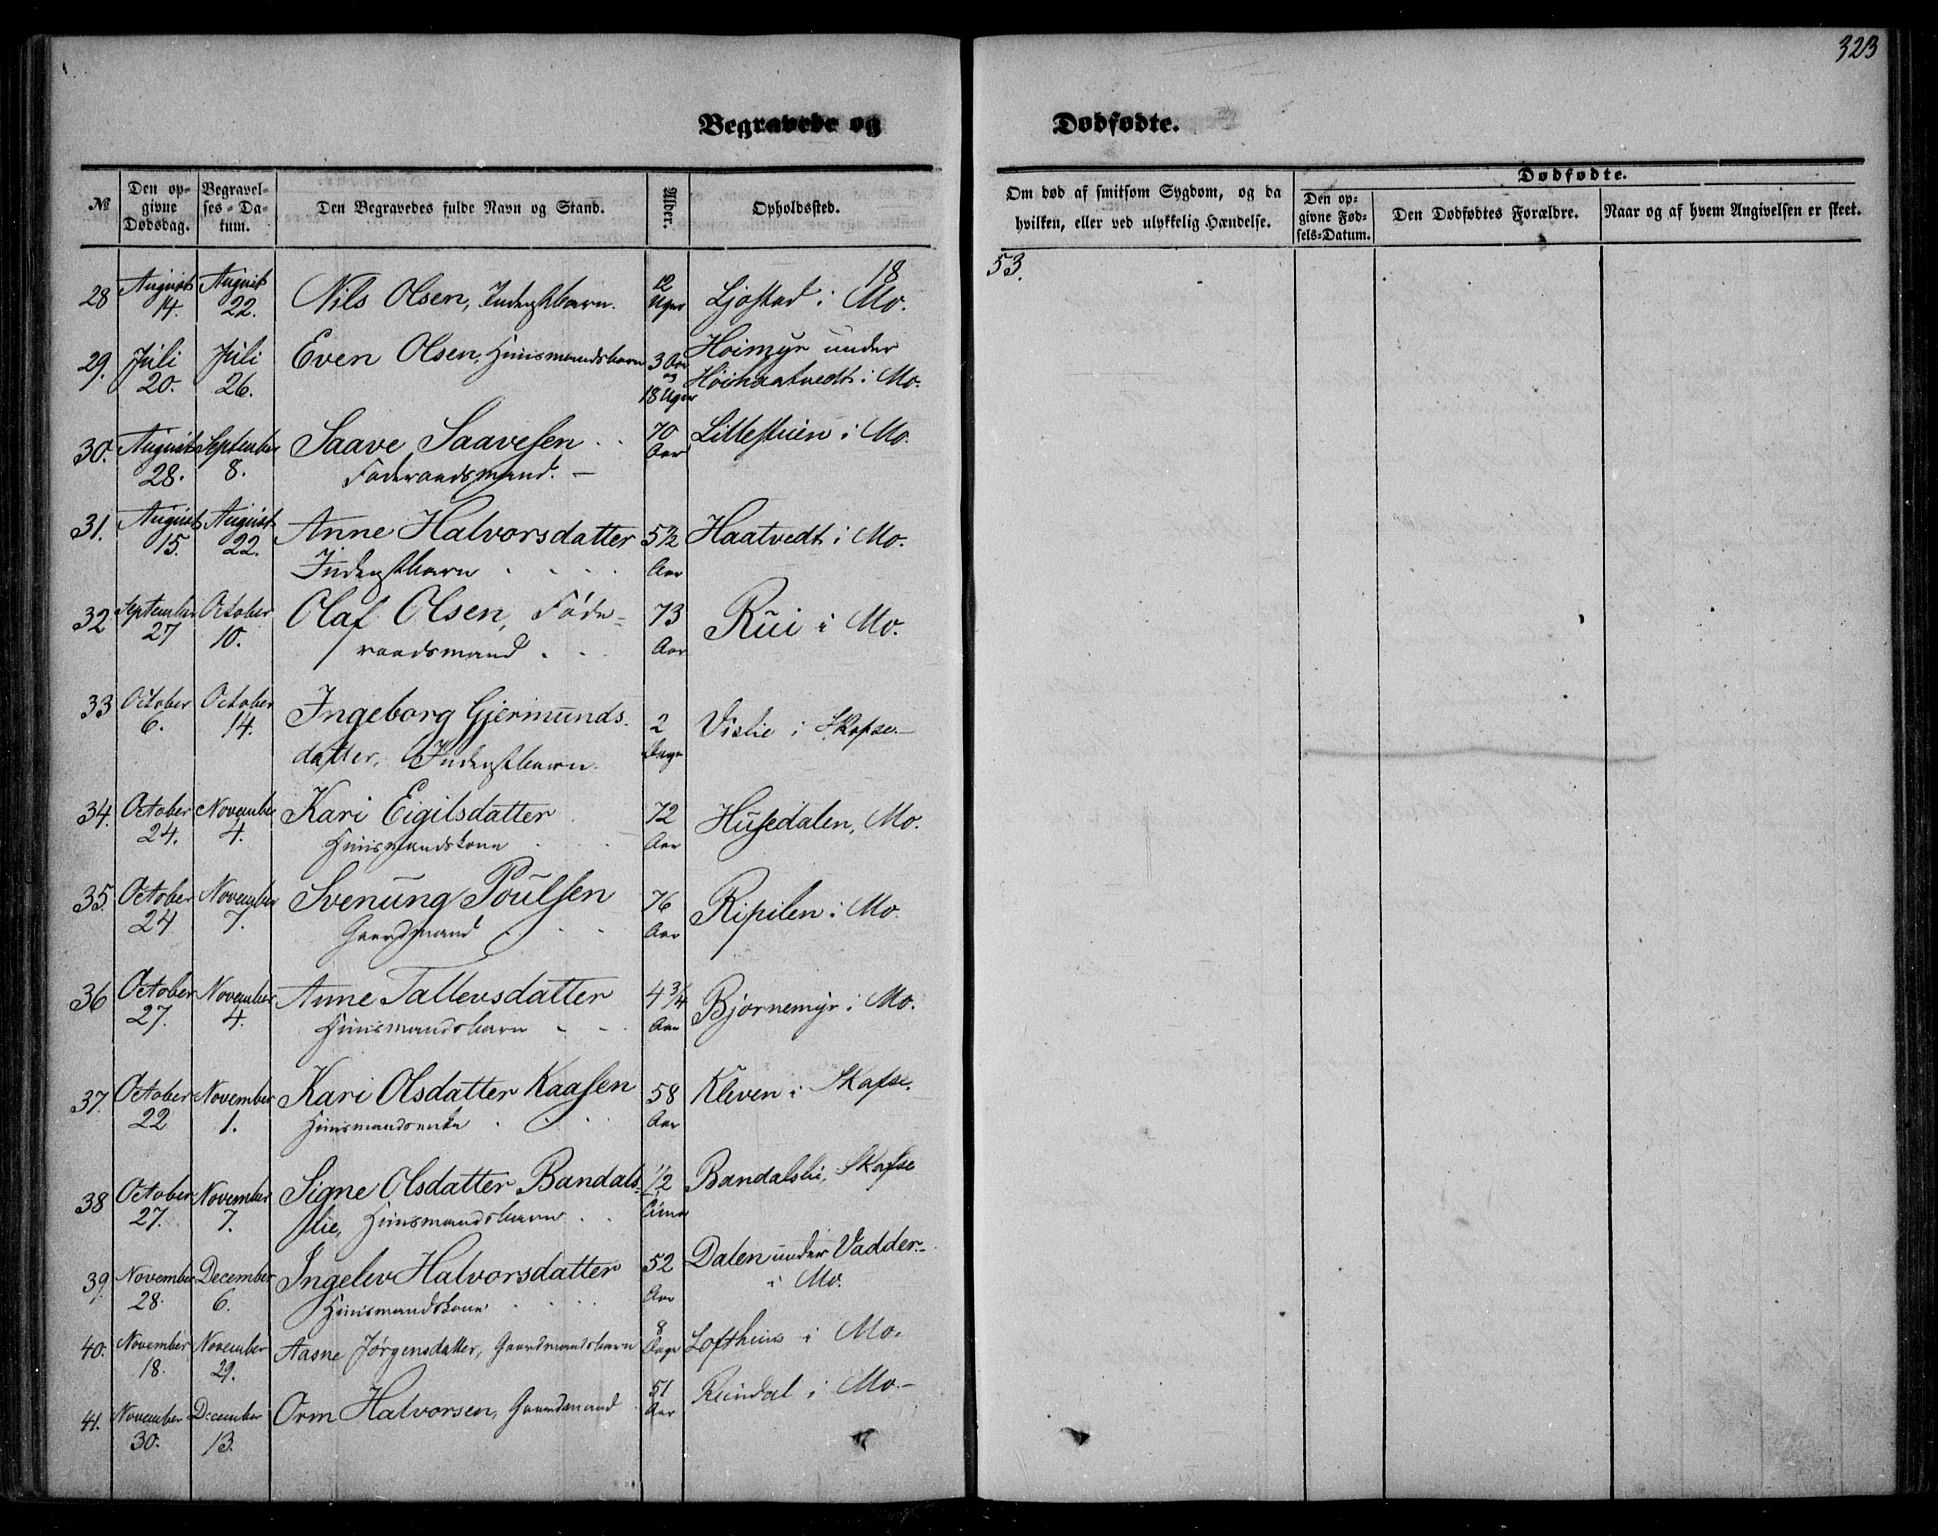 323
Begravede og Dødfødte.
№ Den opgivne Dødsdag. Begravelses-Datum. Den Begravedes fulde Navn og Stand. Alder. Opholdssted.
Om død af smitsom Sygdom, og da hvilken, eller ved ulykkelig Hændelse.
Dødfødte.
Den opgivne Fødsels-Datum. Den Dødfødtes Forældre. Naar og af hvem Angivelsen er skeet.
18 53.
28 August 14. August 22. Nils Olsen, Inderstbarn. 12 Uger Ljostad i Mo.
29. Juli 20. Juli 26. Even Olsen, Huusmandsbarn 3 Aar og 18 Uger Hoimyr under Höihaatvedt i Mo.
30. August 28. September 8. Saave Saavesen Föderaadsmand. 70 Aar Littlestuien i Mo.
31. August 15. August 22. Anne Halvorsdatter Inderstbarn 5½ Aar Haatvedt i Mo.
32 September 27 October 10. Olaf Olsen, Föderaadsmand 73 Aar Rui i Mo.
33 October 6. October 14. Ingeborg Gjermundsdatter, Inderstbarn. 2 Dage Vislie i Skafse
34. October 24. November 4. Kari Eigilsdatter Huusmandskone 72 Aar Husedalen, Mo.
35. October 24 November 7. Svenung Poulsen Gaardmand 76 Aar Ripilen i Mo.
36 October 27. November 4. Anne Tallevsdatter Huusmandsbarn 4¾ Aar Bjørnemyr i Mo.
37. October 22 November 1. Kari Olsdatter Kaasen Huusmandsenke 58 Aar Kleven i Skafse.
38 October 27. November 7. Signe Olsdatter Bandalslie, Huusmandsbarn ½ Time Bandalslie, Skafse
39. November 28. December 6. Ingelev Halvorsdatter Huusmandskone 52 Aar Dalen under Vadder i Mo.
40. November 18. November 29. Aasne Jørgensdatter, Gaardmandsbarn 8 Dage Lofthuus i Mo.
41. November 30. December 13. Orm Halvorsen, Gaardmand 51 Aar Rundal i Mo.